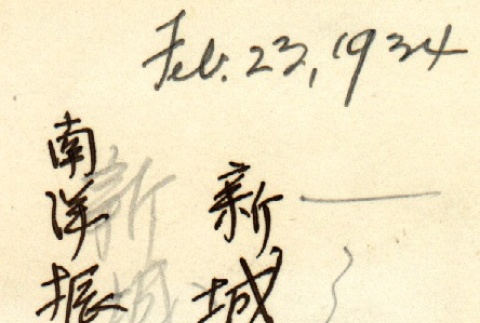 Feb. 23, 1934
新城
南洋振
新城